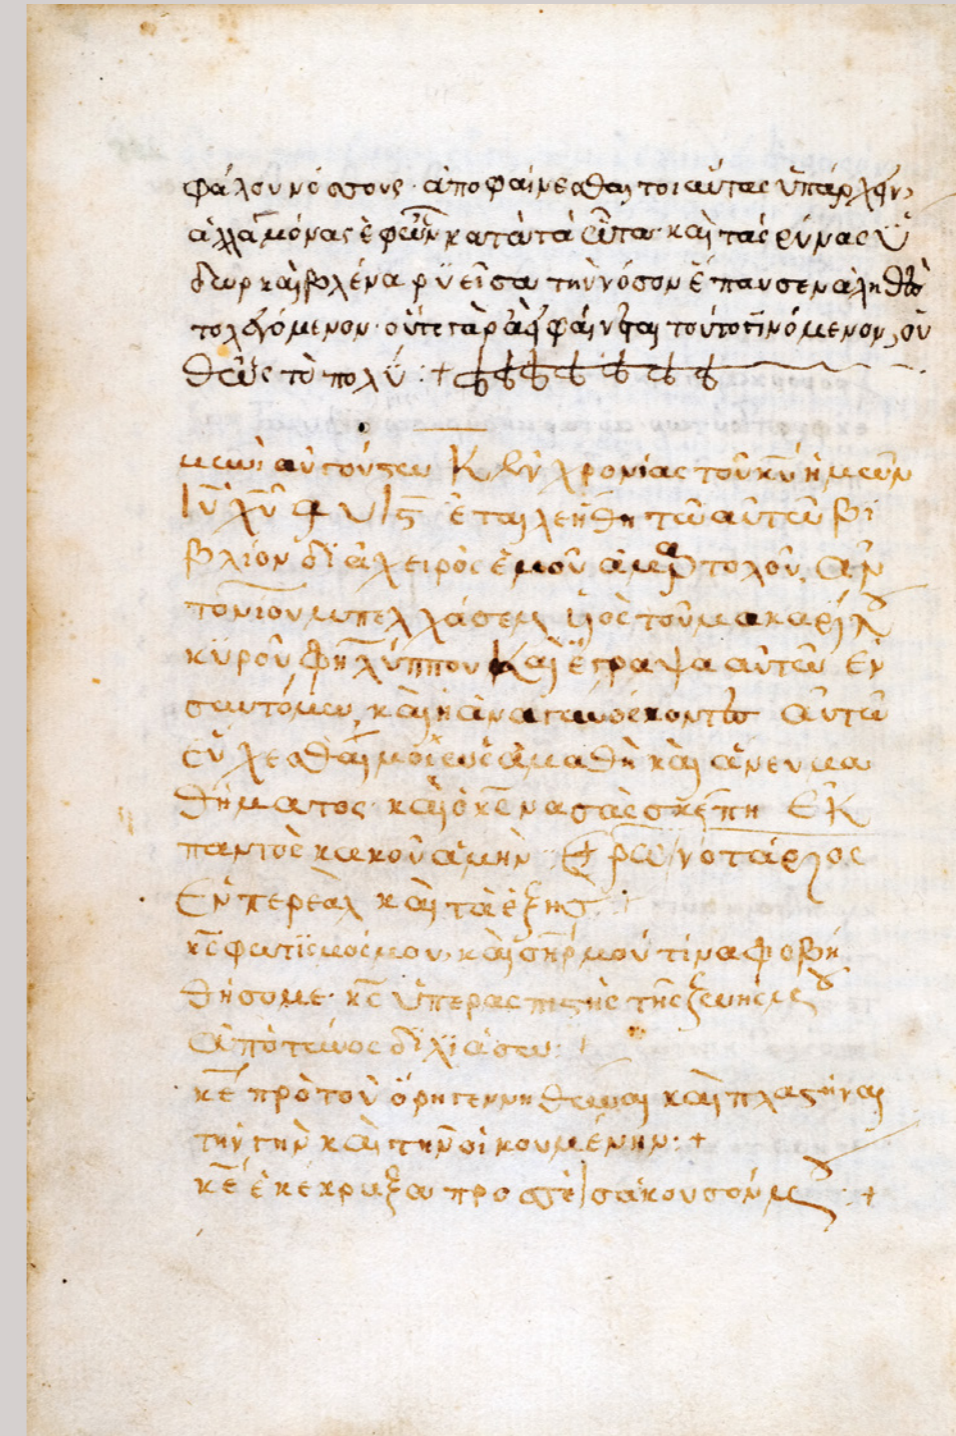 φάλου νόσους· ἀποφαίνεσθαι τοιαύτας ὑπάρχειν,
ἀλλὰ μόνας ἐφ' ὧν κατὰ τὰ ὦτα καὶ τὰς ῥύνας ὕ
δωρ καὶ βλένα ῥυεῖσα τὴν νόσον ἔπαυσεν ἀληθὲς
τὸ λεγόμενον· οὔτε γὰρ ἀεὶ φαίνεται τοῦτο γινόμενον, οὔ
θ' ὡς τὸ πολύ :+
χρονίας τοῦ κυ ἡμῶν
ιυ χυ ͵αφιϛ ἐτελειήθη τῶ αὐτῶ βι
βλίον διὰ χειρὸς ἐμοῦ ἁμαρτολοῦ, ἀν
τονίου υἱὸς τοῦ μακαρίτου
κυροῦ φηλύππου Καὶ ἔγραψα αὐτῶ ἐν
συντόμω, καὶ ἡ ἀναγινόσκοντες αὐτῶ
εὔχεσθαί μοι ὡς ἀμαθῆ καὶ ἄνευ μα
θήματος καὶ ὁ κς να σας σκέπη ἐκ
παντὸς κακοῦ ἀμήν νοτάριος
καὶ τὰ ἑξῆς :
κς φωτισμός μου, καὶ σηρ μου τίνα φοβη
θήσομε· κς ὑπερασπιστὴς τῆς ζωῆς μου
ἀπὸ τίνος διλιάσω : +
κε πρὸ τοῦ ὄρη γεννηθῶναι καὶ πλαστῆναι
τὴν γῆν καὶ τὴν οἰκουμένην : +
κε ἐκέκραξα προς σὲ εἰσάκουσόν μου : +